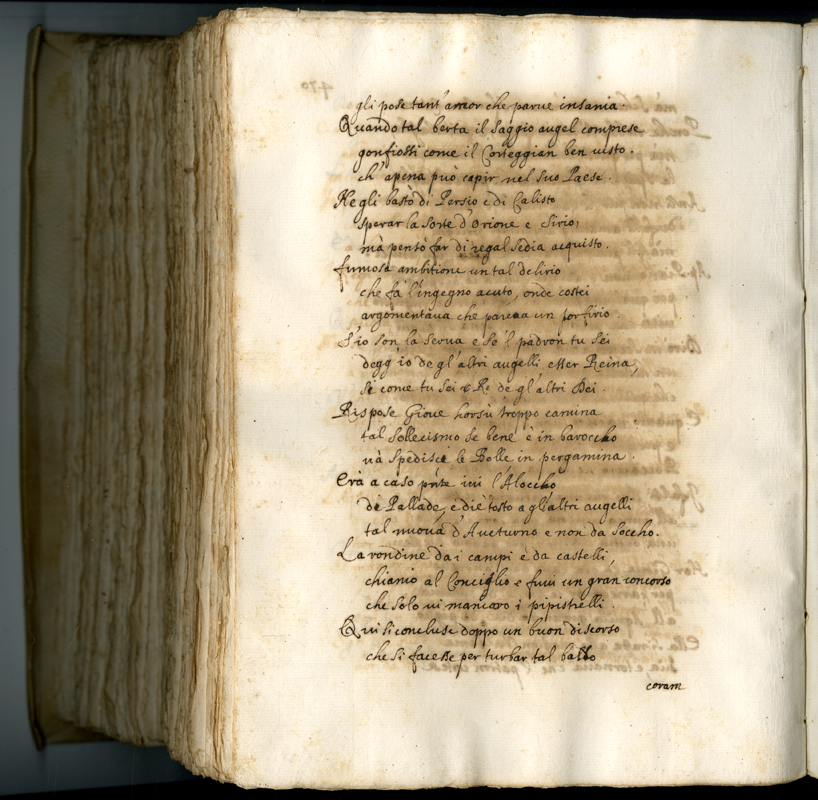 gli pose tant'amor che parue insania.
Quando tal berta il saggio augel comprese
gonfiossi come il Corteggian ben uisto.
ch'apena può capir nel suo Paese.
Ne gli bastò di Persio e di Calisto
sperar la sorte d'Orione e Sirio;
mà pentò far di regal sedia acquisto.
fumosa ambitione un tal delirio
che fà l'ingegno acuto, onde costei
argomentaua che pareua un porfirio.
S'io son la serua e se'l padron tu sei
degg'io de gl'altri augelli esser Reina,
se come tu sei Re de gl'altri Dei.
Rispose Gioue horsù troppo camina
tal sollecismo se bene è in baroccho
uà spedisci le Bolle in pergamina.
Era a caso pnte iui l'Aloccho
di Pallade, e diè tosto agl'altri augelli
tal nuoua d'Aueturno e non da soccho.
La rondine da i campi e da castelli,
chiamò al Conciglio e fuui un gran concorso
che solo ui mancaro i pipistrelli.
Qui si concluse doppo un buon discorso
che si facesse per turbar tal ballo
coram